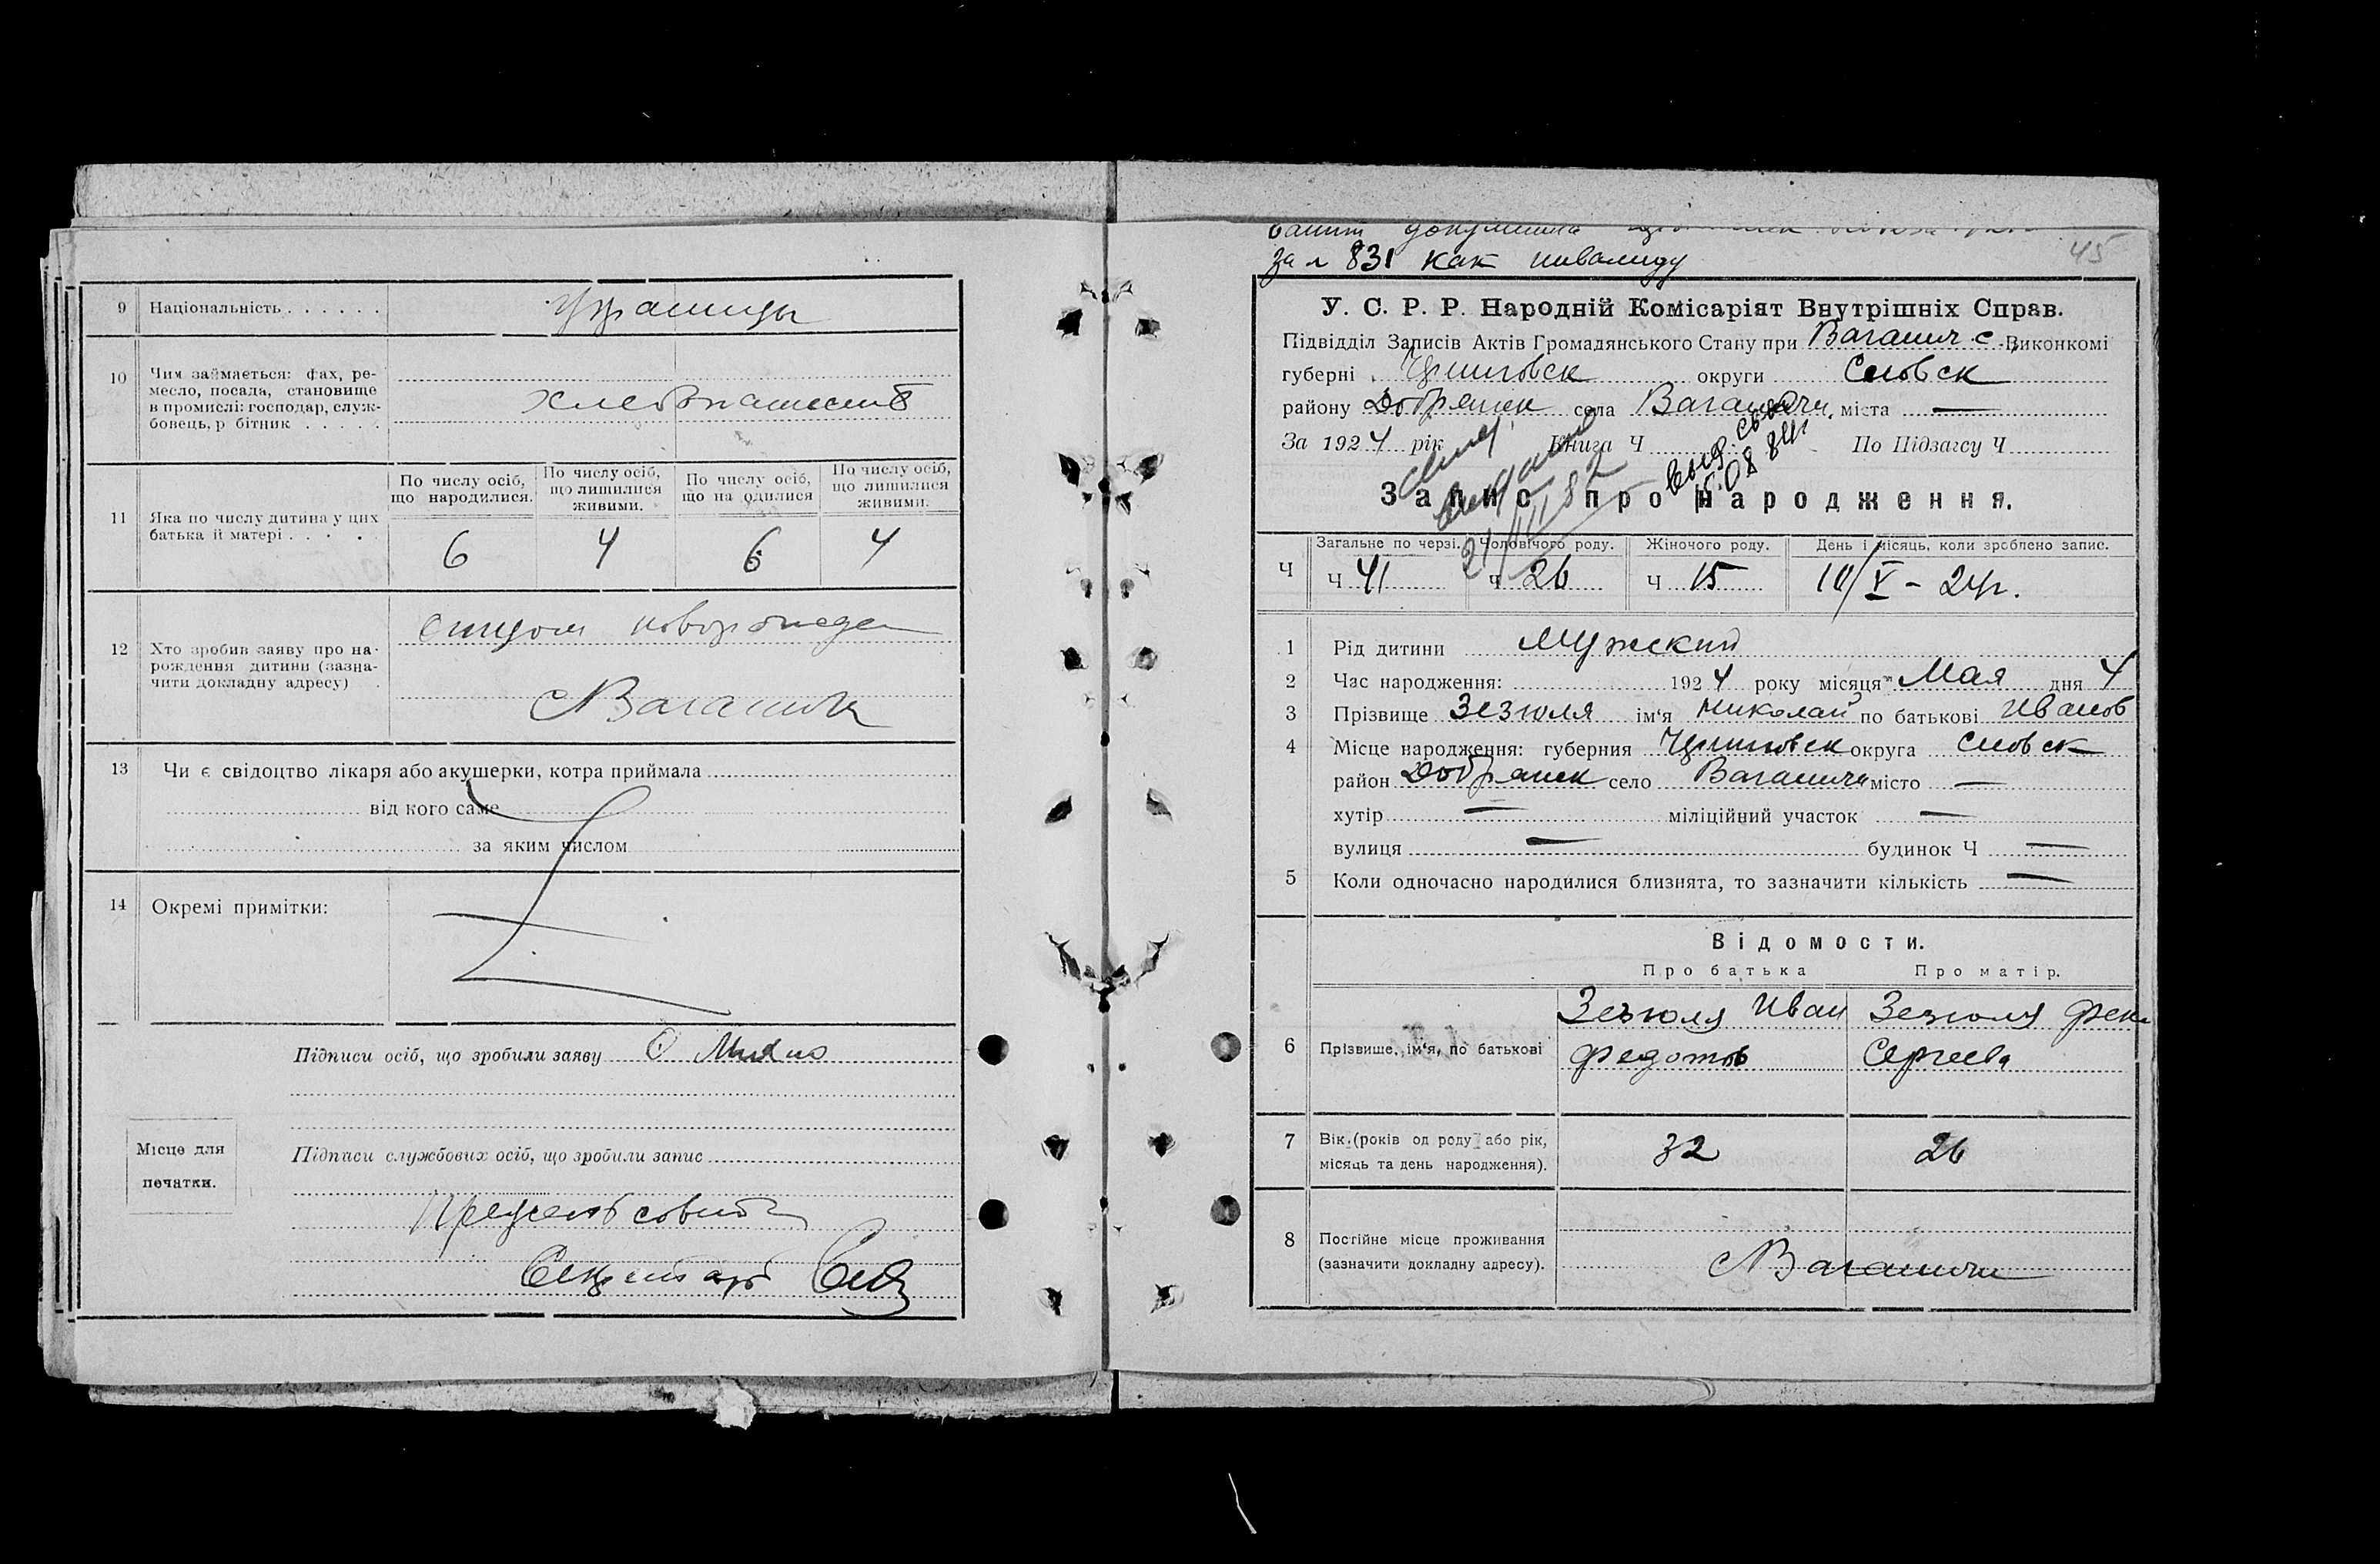 9 Національність . . . . . . украинцы
10 Чим займається: фах, ре-
месло, посада, становище
в промислі: господар, служ-
бовець, р бітник . . . . .
хлебопашест
11 Яка по числу дитина у цих
батька й матері . . . .
По числу осіб,
що народилися.
По числу осіб,
що лишилися
живими.
По числу осіб,
що на одилися
По числу осіб,
що лишилися
живими.
6 4 6 4
12 Хто зробив заяву про на-
рождення дитини (зазна-
чити докладну адресу)
отцом новорожден
с Ваганичи
13 Чи є свідоцтво лікаря або акушерки, котра приймала
від кого саме
за яким числом
14 Окремі примітки:
Підписи осіб, що зробили заяву
Місце для
печатки.
Підписи службових осіб, що зробили запис
Предсельсовета
Секретарь
документа
за № 831 как инвалиду
45
У. С. Р. Р. Народній Комісаріят Внутрішніх Справ.
Підвідділ Записів Актів Громадянського Стану при Ваганич. с. Виконкомі
губерні Черниговск округи Сновск
району Добрянск села Ваганичи міста —
За 1924 рік Книга Ч По Підзагсу Ч
21/VIII 82
15.08 84г
Запис про народження.
Ч
Загальне по черзі. Чоловічого роду. Жіночого роду. День і місяць, коли зроблено запис.
Ч 41 Ч 26 Ч 15 10/V – 24г.
1 Рід дитини Мужский
2 Час народження: 1924 року місяця Мая дня 4
3 Прізвище Зезюля ім‘я Николай по батькові Иванов
4 Місце народження: губерния Черниговск округа Сновск
район Добрянск село Ваганичи місто —
хутір — міліційний участок —
вулиця — будинок Ч —
5 Коли одночасно народилися близнята, то зазначити кількість —
Відомости.
Про батька Про матір.
6 Прізвище, ім‘я, по батькові
Зезюля Иван
Федотов
Зезюля Фек
Сергеева
7 Вік (років од роду або рік,
місяць та день народження).
32 26
8 Постійне місце проживання
(зазначити докладну адресу).
с Ваганичи